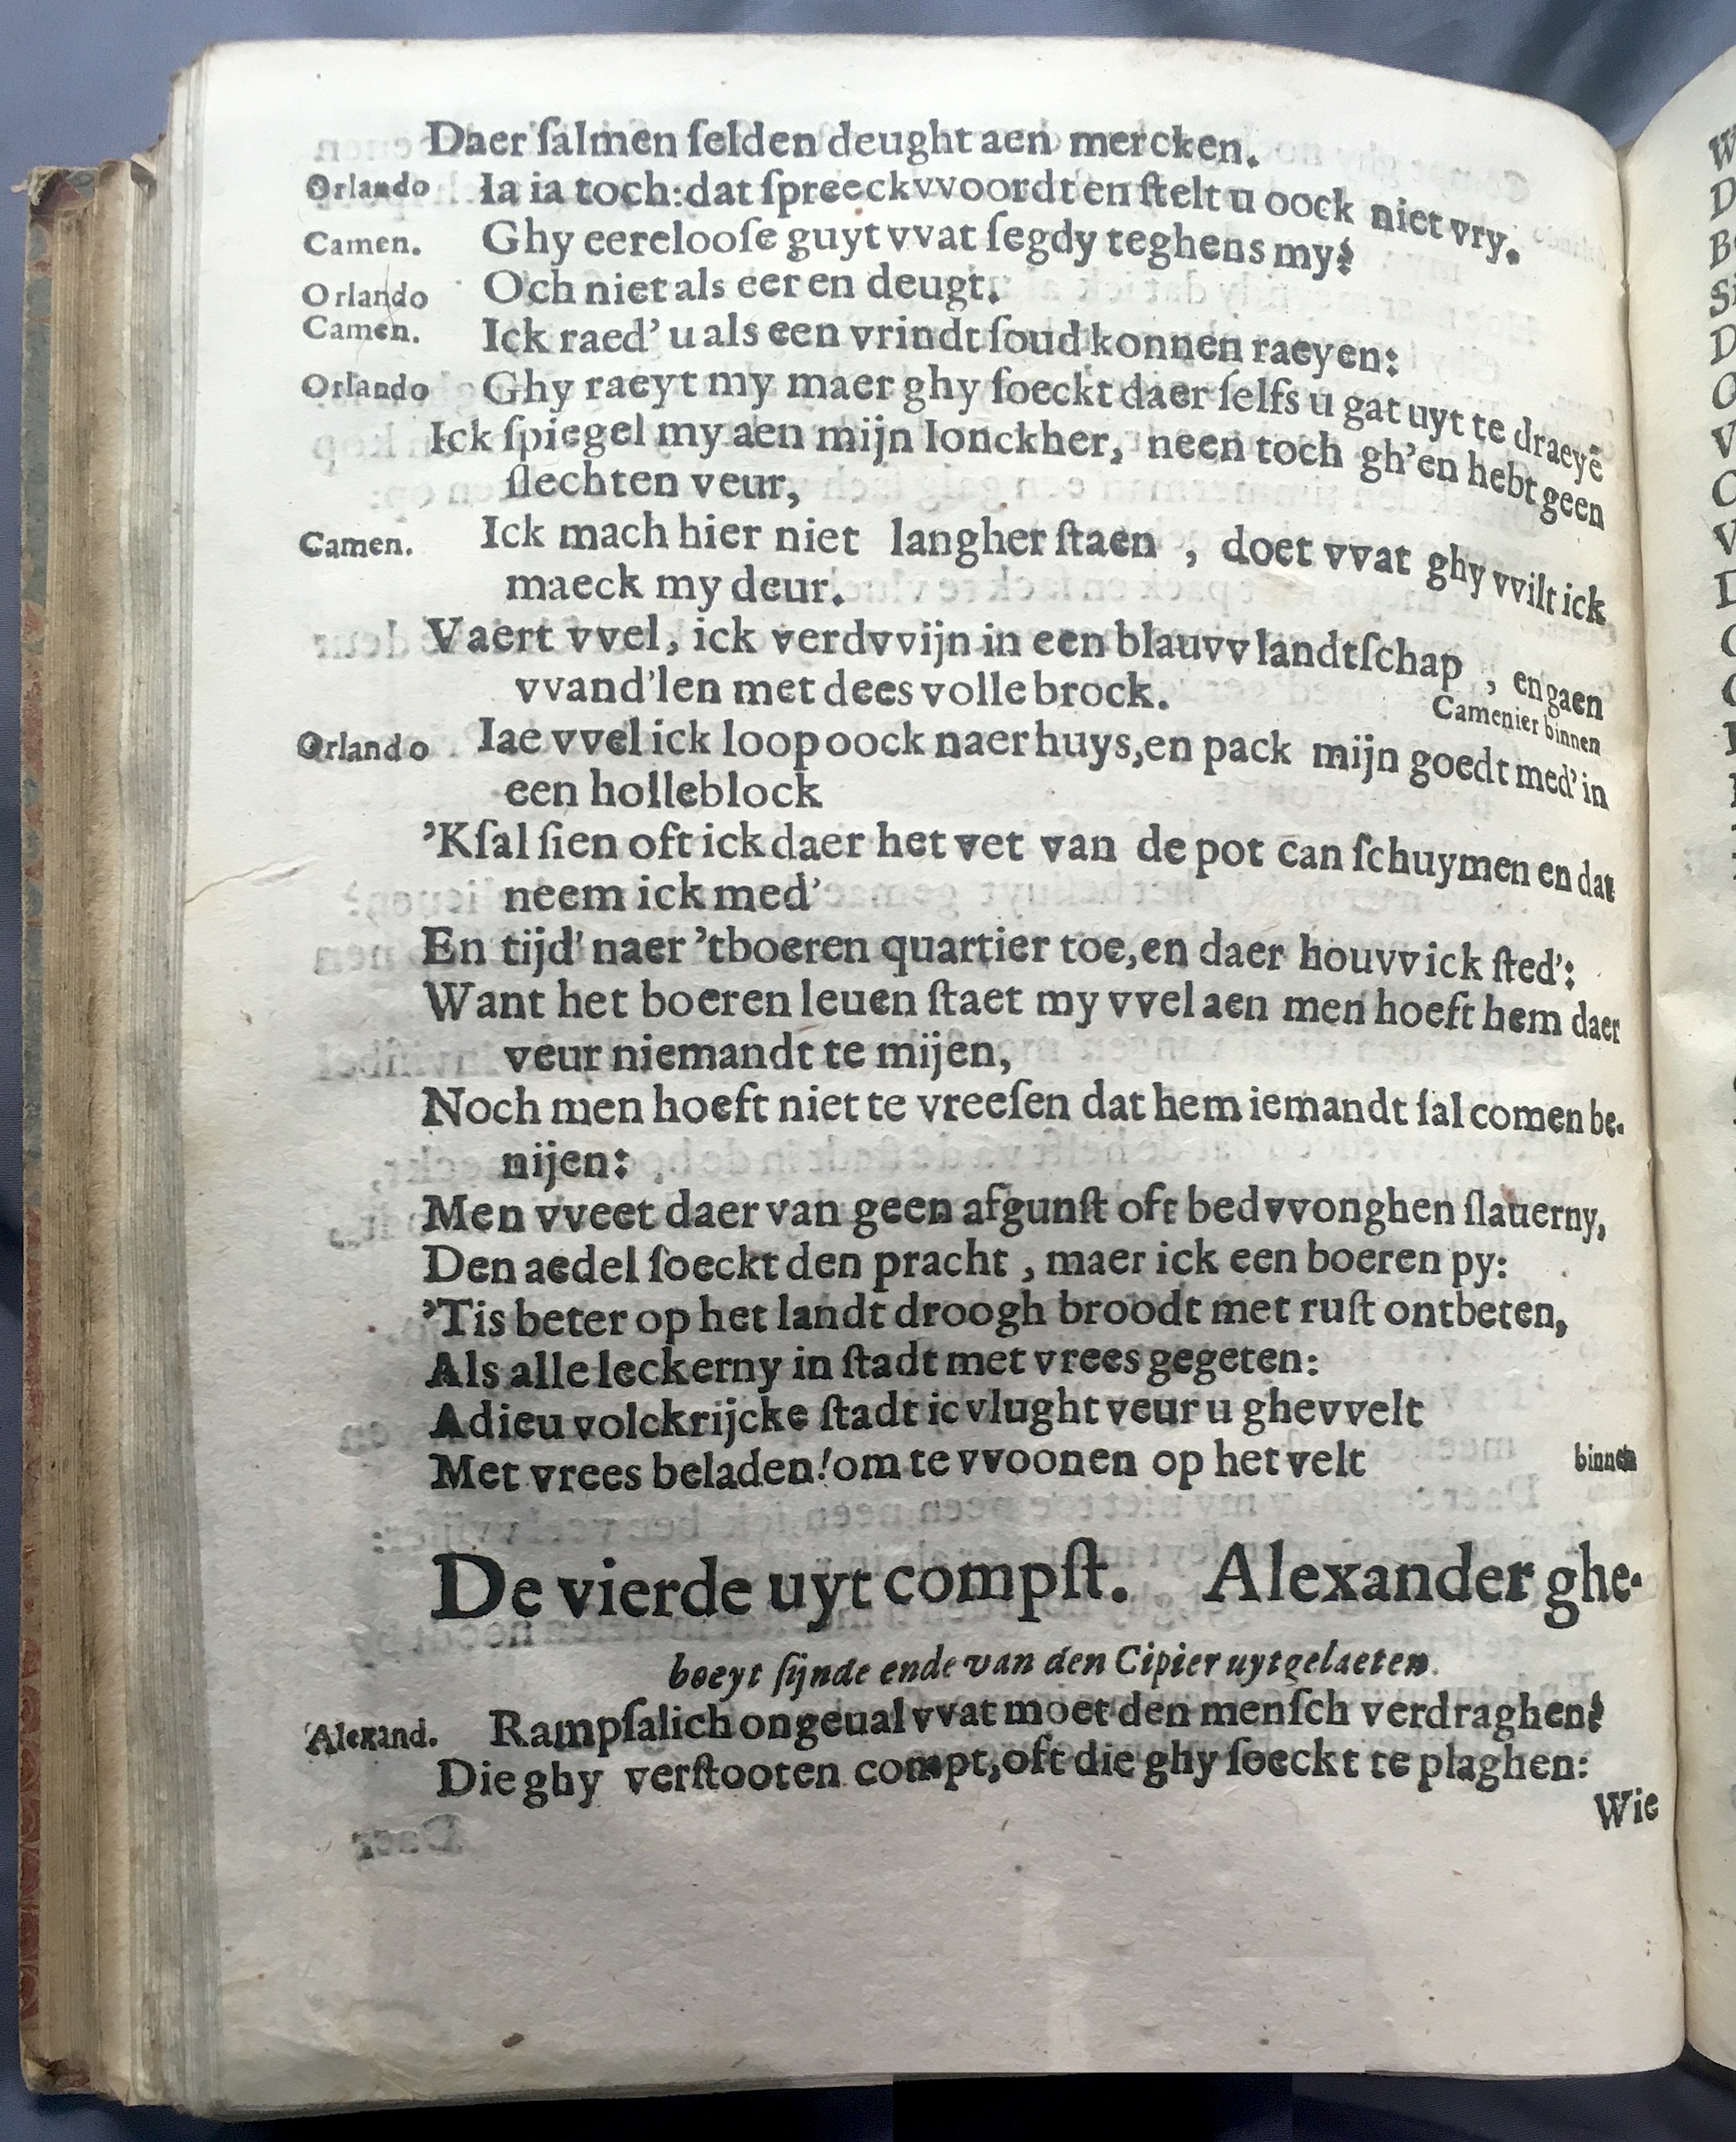 Daer ſalmen ſelden deught aen mercken.
Orlando Ia ia toch: dat ſpreeckvvoordt en ſtelt u oock niet vry.
Camen. Ghy eerelooſe guyt vvat ſegdy teghens my?
Orlando Och niet als eer en deugt.
Camen. Ick raed' u als een vrindt ſoud konnen raeyen:
Orlando Ghy raeyt my maer ghy ſoeckt daer ſelfs u gat uyt te draeyē
Ick ſpiegel my aen mijn Ionckher, neen toch gh'en hebt geen
ſlechten veur,
Camen. Ick mach hier niet langher ſtaen , doet vvat ghy vvilt ick
maeck my deur.
Vaert vvel, ick verdvvijn in een blauvv landtſchap , en gaen
vvand'len met dees volle brock.
Camenier binnen
Orlando Iae vvel ick loop oock naer huys, en pack mijn goedt med' in
een holleblock
'Kſal ſien oft ick daer het vet van de pot can ſchuymen en dat
neem ick med'
En tijd' naer 'tboeren quartier toe, en daer houvv ick ſted':
Want het boeren leuen ſtaet my vvel aen men hoeft hem daer
veur niemandt te mijen,
Noch men hoeft niet te vreeſen dat hem iemandt ſal comen be-
nijen:
Men vveet daer van geen afgunſt oft bedvvonghen ſlauerny,
Den aedel ſoeckt den pracht , maer ick een boeren py:
'Tis beter op het landt droogh broodt met ruſt ontbeten,
Als alle leckerny in ſtadt met vrees gegeten:
Adieu volckrijcke ſtadt ic vlught veur u ghevvelt
Met vrees beladen! om te vvoonen op het velt binnen
De vierde uyt compſt. Alexander ghe-
boeyt ſijnde ende van den Cipier uytgelaeten.
Alexand. Rampſalich ongeual vvat moet den menſch verdraghen?
Die ghy verſtooten compt, oft die ghy ſoeckt te plaghen:
Wie